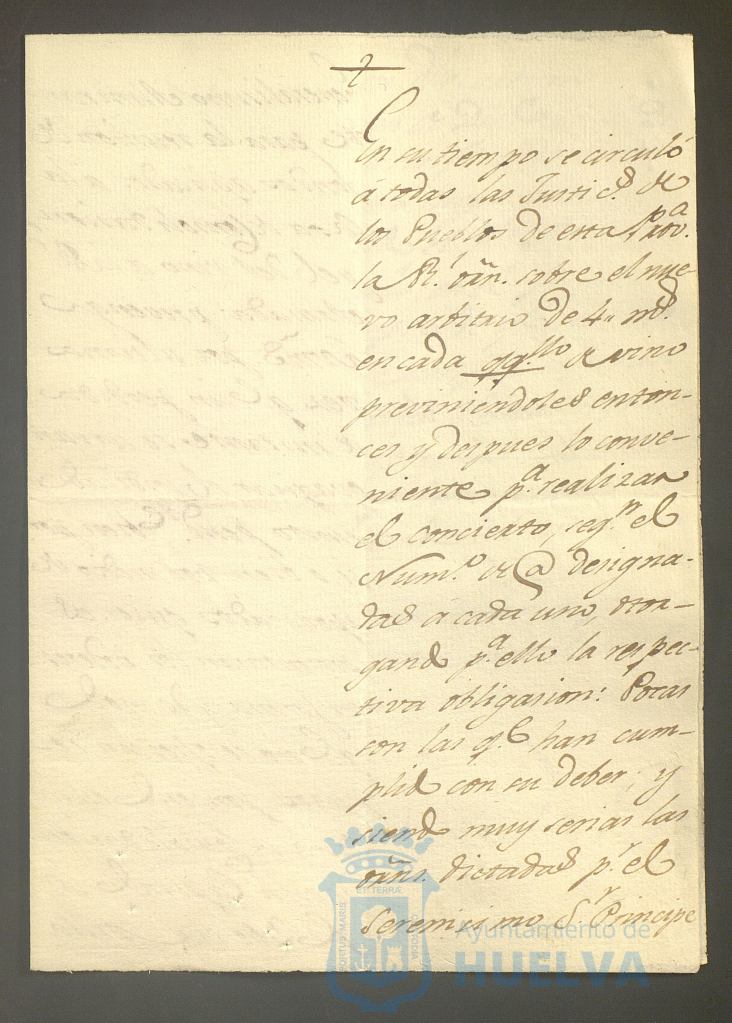 En su tiempo se circuló
á todas las Justic.s de
los Pueblos de esta Prov.a
la R.l orñ. sobre el nue-
vo arbitrio de 4 ms.
en cada qq.llo de vino
previniendoles enton-
ces y despues lo conve-
niente p.a realizar
el concierto, seg.n el
Num.o de @ designa-
das á cada uno, otor-
gand p.a ello la respec-
tiva obligasion: Pocas
son las q.e han cum-
plid con su deber; y
siend muy serias las
orñs. dictadas p.r el
Serenisimo S.r Principe
PORTUS MARIS
ET TERRÆ
CUSTODIA
Ayuntamiento de
HUELVA